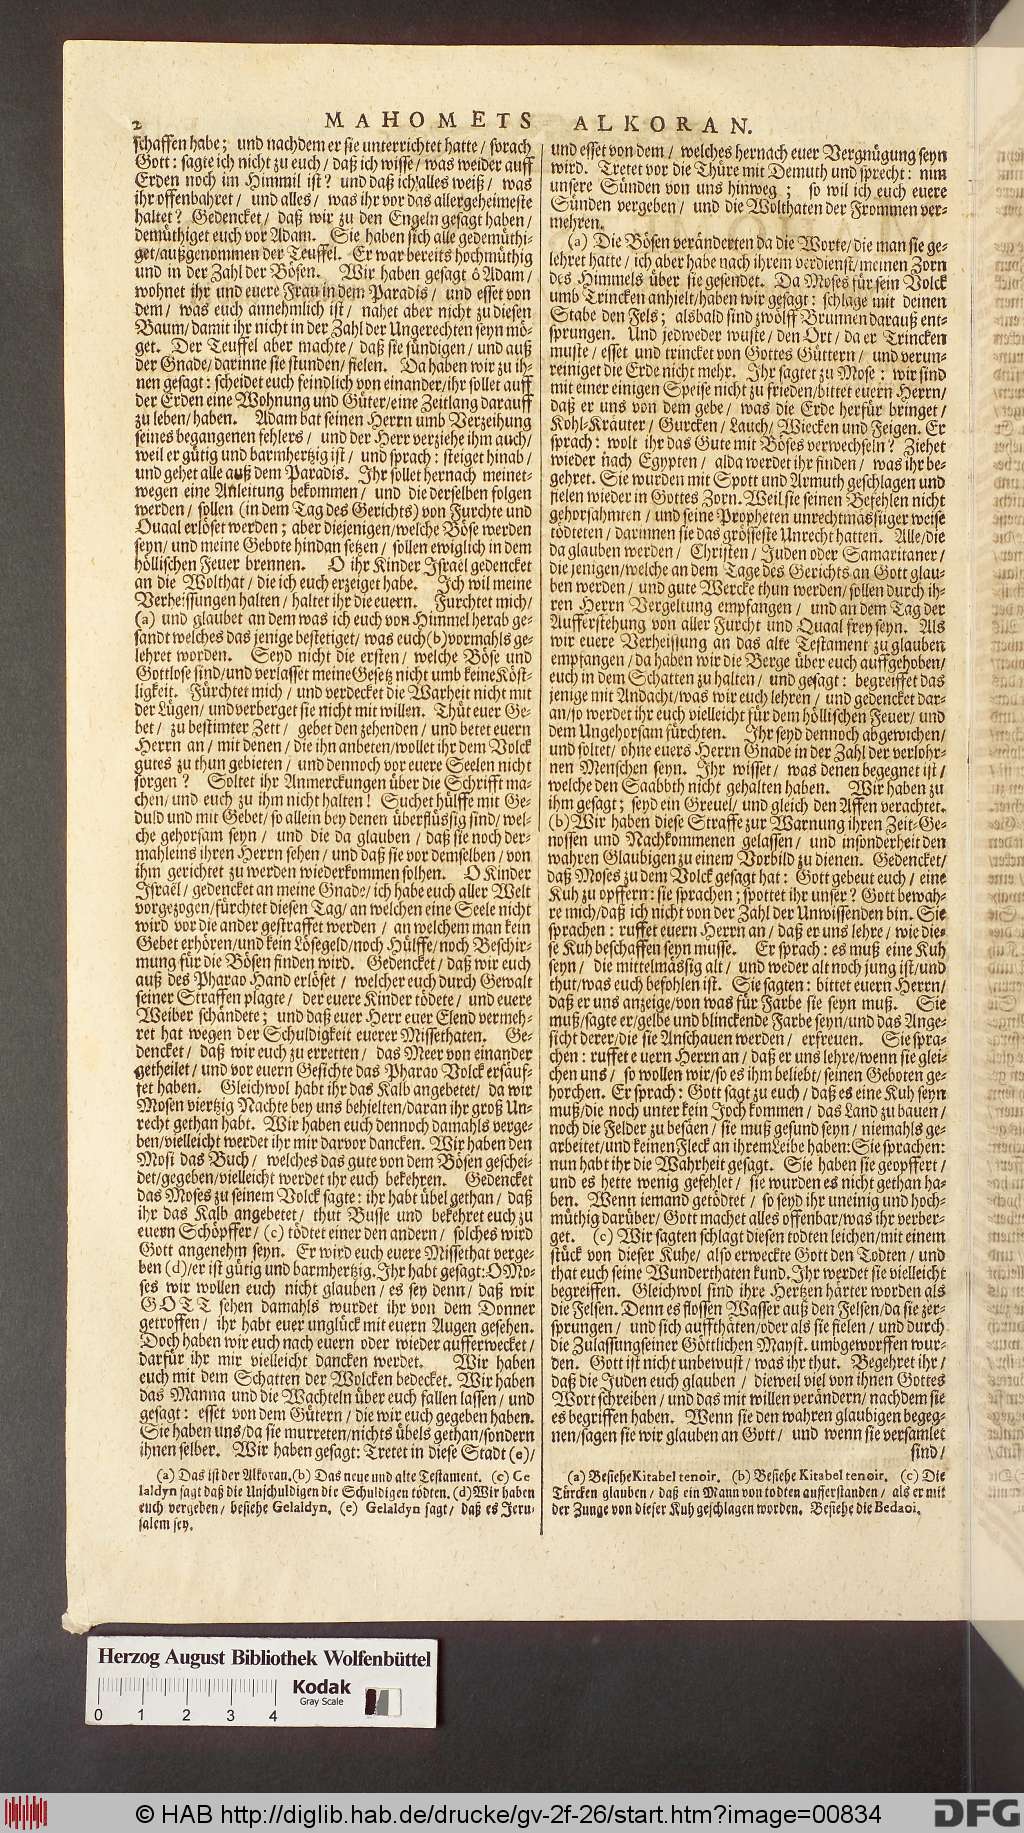 2
MAHOMETS ALKORAN.
schaffen habe; und nachdem er sie unterrichtet hatte / sprach
Gott: sagte ich nicht zu euch / daß ich wisse / was weider auff
Erden noch im Himmil ist? und daß ich alles weiß / was
ihr offenbahret / und alles / was ihr vor das allergeheimeste
haltet? Gedencket / daß wir zu den Engeln gesagt haben /
demüthiget euch vor Adam. Sie haben sich alle gedemüthi-
get / außgenommen der Teuffel. Er war bereits hochmüthig
und in der Zahl der Bösen. Wir haben gesagt ô Adam /
wohnet ihr und euere Frau in dem Paradis / und esset von
dem / was euch annehmlich ist / nahet aber nicht zu diesen
Baum / damit ihr nicht in der Zahl der Ungerechten seyn mö-
get. Der Teuffel aber machte / daß sie sündigen / und auß
der Gnade / darinne sie stunden / fielen. Da haben wir zu ih-
nen gesagt: scheidet euch feindlich von einander / ihr sollet auff
der Erden eine Wohnung und Güter / eine Zeitlang darauff
zu leben / haben. Adam bat seinen Herrn umb Verzeihung
seines begangenen fehlers / und der Herr verziehe ihm auch /
weil er gütig und barmhertzig ist / und sprach: steiget hinab /
und gehet alle auß dem Paradis. Ihr sollet hernach meinet-
wegen eine Anleitung bekommen / und die derselben folgen
werden / sollen (in dem Tag des Gerichts) von Furchte und
Quaal erlöset werden; aber diejenigen / welche Böse werden
seyn / und meine Gebote hindan setzen / sollen ewiglich in dem
höllischen Feuer brennen. O ihr Kinder Israël gedencket
an die Wolthat / die ich euch erzeiget habe. Ich wil meine
Verheissungen halten / haltet ihr die euern. Furchtet mich /
(a) und glaubet an dem was ich euch von Himmel herab ge-
sandt welches das jenige bestetiget / was euch (b) vormahls ge-
lehret worden. Seyd nicht die ersten / welche Böse und
Gottlose sind / und verlasset meine Gesetz nicht umb keine Köst-
ligkeit. Fürchtet mich / und verdecket die Warheit nicht mit
der Lügen / und verberget sie nicht mit willen. Thut euer Ge-
bet / zu bestimter Zett / gebet den zehenden / und betet euern
Herrn an / mit denen / die ihn anbeten / wollet ihr dem Volck
gutes zu thun gebieten / und dennoch vor euere Seelen nicht
sorgen? Soltet ihr Anmerckungen über die Schrifft ma-
chen / und euch zu ihm nicht halten! Suchet hülffe mit Ge-
duld und mit Gebet / so allein bey denen überflüssig sind / wel-
che gehorsam seyn / und die da glauben / daß sie noch der-
mahleins ihren Herrn sehen / und daß sie vor demselben / von
ihm gerichtet zu werden wiederkommen solhen. O Kinder
Israël / gedencket an meine Gnade / ich habe euch aller Welt
vorgezogen / fürchtet diesen Tag / an welchen eine Seele nicht
wird vor die ander gestraffet werden / an welchem man kein
Gebet erhören / und kein Lösegeld / noch Hülffe / noch Beschir-
mung für die Bösen finden wird. Gedencket / daß wir euch
auß des Pharao Hand erlöset / welcher euch durch Gewalt
seiner Straffen plagte / der euere Kinder tödete / und euere
Weiber schändete; und daß euer Herr euer Elend vermeh-
ret hat wegen der Schuldigkeit euerer Missethaten. Ge-
dencket / daß wir euch zu erretten / das Meer von einander
getheilet / und vor euern Gesichte das Pharao Volck ersäuf-
tet haben. Gleichwol habt ihr das Kalb angebetet / da wir
Mosen viertzig Nachte bey uns behielten / daran ihr groß Un-
recht gethan habt. Wir haben euch dennoch damahls verge-
ben / vielleicht werdet ihr mir darvor dancken. Wir haben den
Mosi das Buch / welches das gute von dem Bösen geschei-
det / gegeben / vielleicht werdet ihr euch bekehren. Gedencket
das Moses zu seinem Volck sagte: ihr habt übel gethan / daß
ihr das Kalb angebetet / thut Busse und bekehret euch zu
euern Schöpffer / (c) tödtet einer den andern / solches wird
Gott angenehm seyn. Er wird euch euere Missethat verge-
ben (d) / er ist gütig und barmhertzig. Ihr habt gesagt: O Mo-
ses wir wollen euch nicht glauben / es sey denn / daß wir
GOTT sehen damahls wurdet ihr von dem Donner
getroffen / ihr habt euer unglück mit euern Augen gesehen.
Doch haben wir euch nach euern oder wieder aufferwecket /
darfür ihr mir vielleicht dancken werdet. Wir haben
euch mit dem Schatten der Wolcken bedecket. Wir haben
das Manna und die Wachteln über euch fallen lassen / und
gesagt: esset von dem Gütern / die wir euch gegeben haben.
Sie haben uns / da sie murreten / nichts übels gethan / sondern
ihnen selber. Wir haben gesagt: Tretet in diese Stadt (e) /
(a) Das ist der Alkoran. (b) Das neue und alte Testament. (c) Ge
laldyn sagt daß die Unschuldigen die Schuldigen tödten. (d) Wir haben
euch vergeben / besiehe Gelaldyn. (e) Gelaldyn sagt / daß es Jeru-
salem sey.
und esset von dem / welches hernach euer Vergnügung seyn
wird. Tretet vor die Thüre mit Demuth und sprecht: nim
unsere Sünden von uns hinweg; so wil ich euch euere
Sünden vergeben / und die Wolthaten der Frommen ver-
mehren.
(a) Die Bösen veränderten da die Worte / die man sie ge-
lehret hatte / ich aber habe nach ihrem verdienst / meinen Zorn
des Himmels über sie gesendet. Da Moses für sein Volck
umb Trincken anhielt / haben wir gesagt: schlage mit deinen
Stabe den Fels; alsbald sind zwölff Brunnen darauß ent-
sprungen. Und jedweder wuste / den Ort / da er Trincken
muste / esset und trincket von Gottes Güttern / und verun-
reiniget die Erde nicht mehr. Ihr sagtet zu Mose: wir sind
mit einer einigen Speise nicht zu frieden / bittet euern Herrn /
daß er uns von dem gebe / was die Erde herfür bringet /
Kohl-Kräuter / Gurcken / Lauch / Wiecken und Feigen. Er
sprach: wolt ihr das Gute mit Böses verwechseln? Ziehet
wieder nach Egypten / alda werdet ihr finden / was ihr be-
gehret. Sie wurden mit Spott und Armuth geschlagen und
fielen wieder in Gottes Zorn. Weil sie seinen Befehlen nicht
gehorsahmten / und seine Propheten unrechtmässiger weise
tödteten / darinnen sie das grösseste Unrecht hatten. Alle / die
da glauben werden / Christen / Juden oder Samaritaner /
die jenigen / welche an dem Tage des Gerichts an Gott glau-
ben werden / und gute Wercke thun werden / sollen durch ih-
ren Herrn Vergeltung empfangen / und an dem Tag der
Aufferstehung von aller Furcht und Quaal frey seyn. Als
wir euere Verheissung an das alte Testament zu glauben
empfangen / da haben wir die Berge über euch auffgehoben /
euch in dem Schatten zu halten / und gesagt: begreiffet das
jenige mit Andacht / was wir euch lehren / und gedencket dar-
an / so werdet ihr euch vielleicht für dem höllischen Feuer / und
dem Ungehorsam fürchten. Ihr seyd dennoch abgewichen /
und soltet / ohne euers Herrn Gnade in der Zahl der verlohr-
nen Menschen seyn. Ihr wisset / was denen begegnet ist /
welche den Saabbth nicht gehalten haben. Wir haben zu
ihm gesagt; seyd ein Greuel / und gleich den Affen verachtet.
(b) Wir haben diese Straffe zur Warnung ihren Zeit-Ge-
nossen und Nachkommenen gelassen / und insonderheit den
wahren Glaubigen zu einem Vorbild zu dienen. Gedencket /
daß Moses zu dem Volck gesagt hat: Gott gebeut euch / eine
Kuh zu opffern: sie sprachen; spottet ihr unser? Gott bewah-
re mich / daß ich nicht von der Zahl der Unwissenden bin. Sie
sprachen: ruffet euern Herrn an / daß er uns lehre / wie die-
se Kuh beschaffen seyn musse. Er sprach: es muß eine Kuh
seyn / die mittelmässig alt / und weder alt noch jung ist / und
thut / was euch befohlen ist. Sie sagten: bittet euern Herrn /
daß er uns anzeige / von was für Farbe sie seyn muß. Sie
muß / sagte er / gelbe und blinckende Farbe seyn / und das Ange-
sicht derer / die sie Anschauen werden / erfreuen. Sie spra-
chen: ruffet e uern Herrn an / daß er uns lehre / wenn sie glei-
chen uns / so wollen wir / so es ihm beliebt / seinen Geboten ge-
horchen. Er sprach: Gott sagt zu euch / daß es eine Kuh seyn
muß / die noch unter kein Joch kommen / das Land zu bauen /
noch die Felder zu besäen / sie muß gesund seyn / niemahls ge-
arbeitet / und keinen Fleck an ihrem Leibe haben: Sie sprachen:
nun habt ihr die Wahrheit gesagt. Sie haben sie geopffert /
und es hette wenig gefehlet / sie wurden es nicht gethan ha-
ben. Wenn iemand getödtet / so seyd ihr uneinig und hoch-
müthig darüber / Gott machet alles offenbar / was ihr verber-
get. (c) Wir sagten schlagt diesen todten leichen / mit einem
stück von dieser Kuhe / also erweckte Gott den Todten / und
that euch seine Wunderthaten kund. Ihr werdet sie vielleicht
begreiffen. Gleichwol sind ihre Hertzen härter worden als
die Felsen. Denn es flossen Wasser auß den Felsen / da sie zer-
sprungen / und sich auffthäten / oder als sie fielen / und durch
die Zulassung seiner Göttlichen Mayst. umbgeworffen wur-
den. Gott ist nicht unbewust / was ihr thut. Begehret ihr /
daß die Juden euch glauben / dieweil viel von ihnen Gottes
Wort schreiben / und das mit willen verändern / nachdem sie
es begriffen haben. Wenn sie den wahren glaubigen begeg-
nen / sagen sie wir glauben an Gott / und wenn sie versamlet
sind /
(a) Besiehe Kitabel tenoir. (b) Besiehe Kitabel tenoir. (c) Die
Türcken glauben / daß ein Mann von todten aufferstanden / als er mit
der Zunge von dieser Kuh geschlagen worden. Besiehe die Bedaoi.
Herzog August Bibliothek Wolfenbüttel
Kodak
Gray Scale
0 1 2 3 4
© HAB http://diglib.hab.de/drucke/gv-2f-26/start.htm?image=00834
DFG